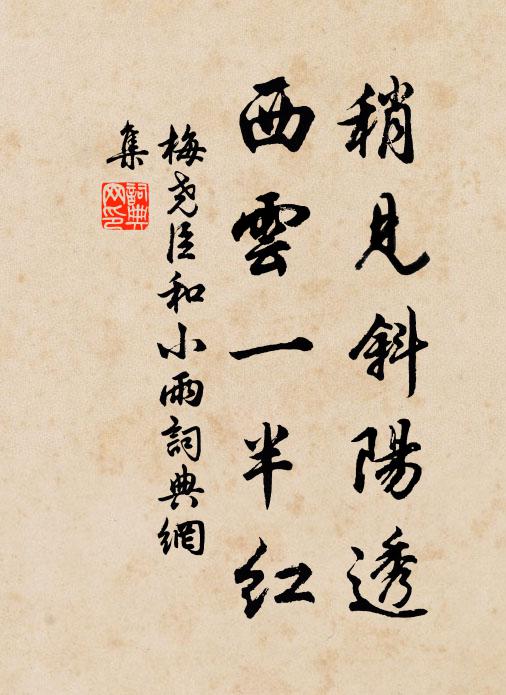 稍見斜陽透
西雲一半紅
梅堯臣和小雨詞典網
集
詞典網印